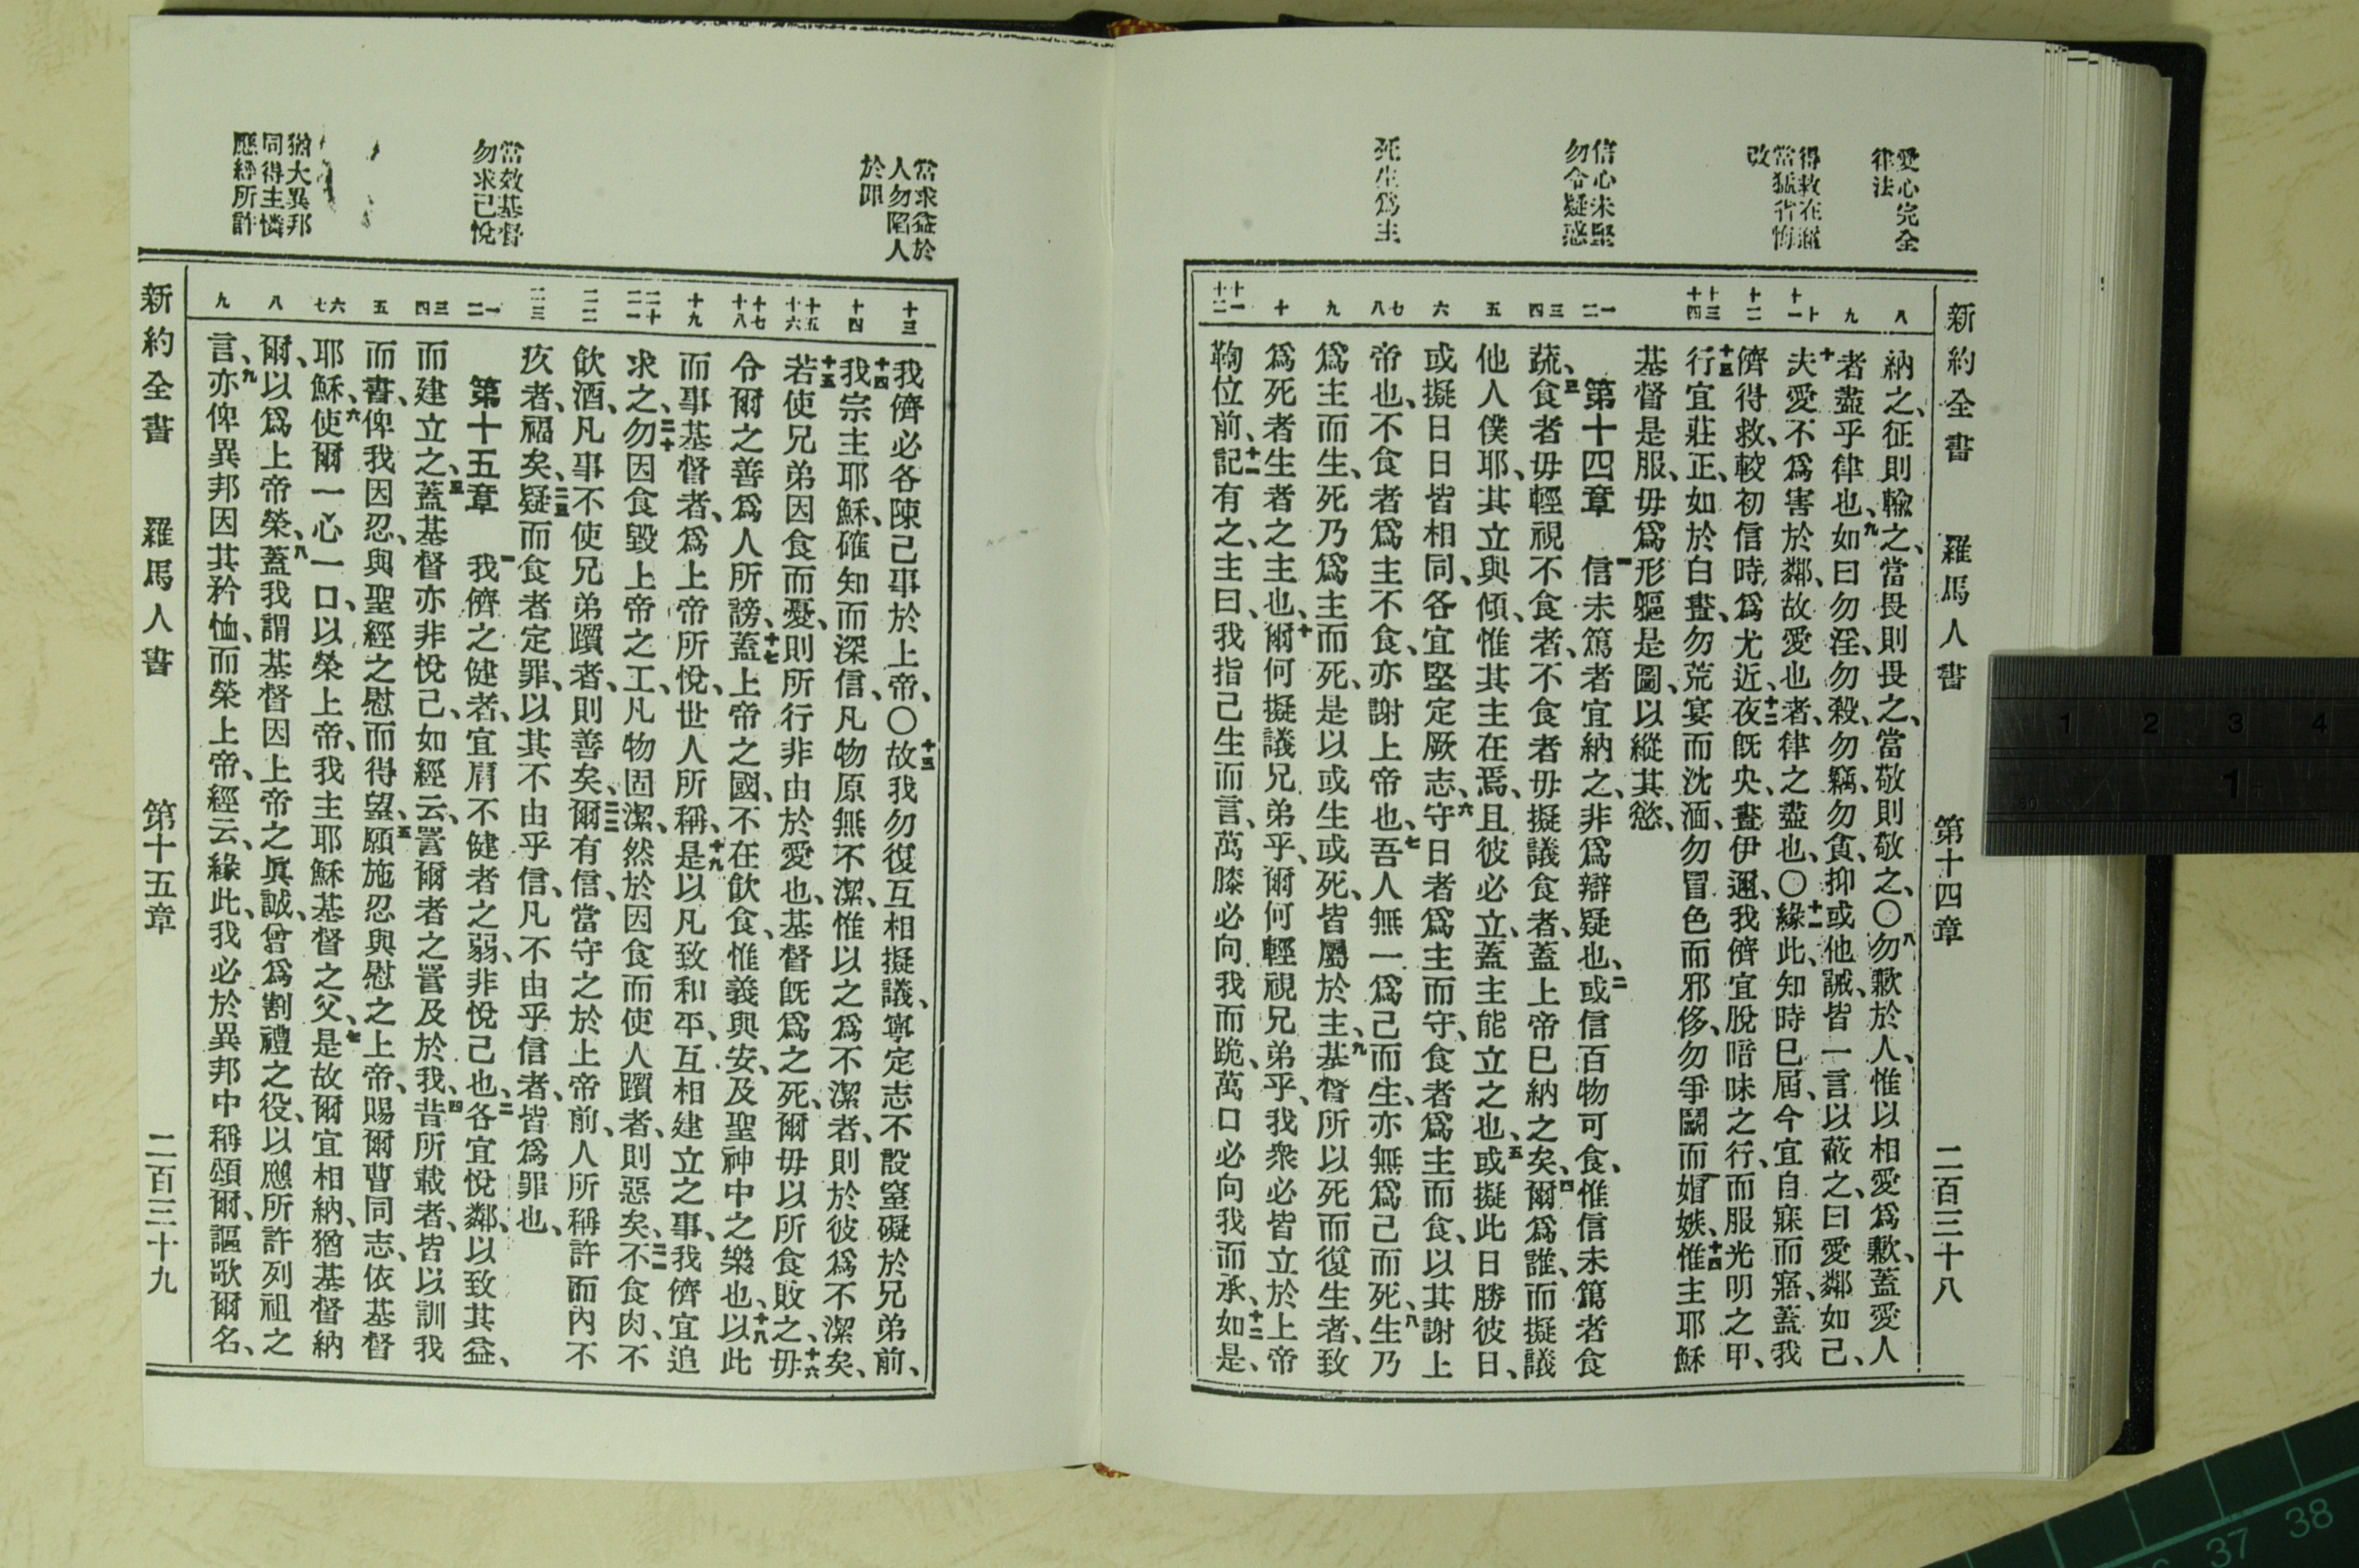 新約全書 羅馬人書 第十四章 二百三十八
愛心完全
律法
得救在邇
當猛省悔
改
信心未堅
勿令疑惑
死生爲主
八
九
十 十一
十二
十三 十四
一 二
三 四
五
六
七 八
九
十
十一 十二
納之、征則輸之、當畏則畏之、當敬則敬之、〇八勿歉於人、惟以相愛爲歉、蓋愛人
者盡乎律也、九如曰勿淫、勿殺、勿竊、勿貪、抑或他誡、皆一言以蔽之、曰愛鄰如己、
十夫愛不爲害於鄰、故愛也者、律之盡也、〇十一緣此、知時已屆、今宜自寐而寤、蓋我
儕得救、較初信時、爲尤近、十二夜既央、晝伊邇、我儕宜脫暗昧之行、而服光明之甲、
十三行宜莊正、如於白晝、勿荒宴而沈湎、勿冒色而邪侈、勿爭鬭而媢嫉、十四惟主耶穌
基督是服、毋爲形軀是圖、以縱其慾、
第十四章 一信未篤者宜納之、非爲辯疑也、二或信百物可食、惟信未篤者食
蔬、三食者毋輕視不食者、不食者毋擬議食者、蓋上帝已納之矣、四爾爲誰、而擬議
他人僕耶、其立與傾、惟其主在焉、且彼必立、蓋主能立之也、五或擬此日勝彼日、
或擬日日皆相同、各宜堅定厥志、六守日者爲主而守、食者爲主而食、以其謝上
帝也、不食者爲主不食、亦謝上帝也、七吾人無一爲己而生、亦無爲己而死、八生乃
爲主而生、死乃爲主而死、是以或生或死、皆屬於主、九基督所以死而復生者、致
爲死者生者之主也、十爾何擬議兄弟乎、爾何輕視兄弟乎、我衆必皆立於上帝
鞫位前、十一記有之、主曰、我指己生而言、萬膝必向我而跪、萬口必向我而承、十二如是、
當求益於
人勿陷人
於罪
當效基督
勿求己悅
猶大異邦
同得主憐
應經所許
十三
十四
十五 十六
十七 十八
十九
二十 二一
二二
二三
一 二
三 四
五
六 七
八
九
我儕必各陳己事於上帝、〇十三故我勿復互相擬議、寧定志不設窒礙於兄弟前、
十四我宗主耶穌、確知而深信、凡物原無不潔、惟以之爲不潔者、則於彼爲不潔矣、
十五若使兄弟因食而憂、則所行非由於愛也、基督既爲之死、爾毋以所食敗之、十六毋
令爾之善爲人所謗、十七蓋上帝之國、不在飲食、惟義與安、及聖神中之樂也、十八以此
而事基督者、爲上帝所悅、世人所稱、十九是以凡致和平、互相建立之事、我儕宜追
求之、二十勿因食毀上帝之工、凡物固潔、然於因食而使人躓者、則惡矣、二一不食肉、不
飲酒、凡事不使兄弟躓者、則善矣、二二爾有信、當守之於上帝前、人所稱許而內不
疚者、福矣、二三疑而食者定罪、以其不由乎信、凡不由乎信者、皆爲罪也、
第十五章 一我儕之健者、宜肩不健者之弱、非悅己也、二各宜悅鄰、以致其益、
而建立之、三蓋基督亦非悅己、如經云、詈爾者之詈及於我、四昔所載者、皆以訓我
而書、俾我因忍、與聖經之慰而得望、五願施忍與慰之上帝、賜爾曹同志、依基督
耶穌、六使爾一心一口、以榮上帝、我主耶穌基督之父、七是故爾宜相納、猶基督納
爾、以爲上帝榮、八蓋我謂基督因上帝之眞誠、曾爲割禮之役、以應所許列祖之
言、九亦俾異邦因其矜恤、而榮上帝、經云、緣此、我必於異邦中稱頌爾、謳歌爾名、
新約全書 羅馬人書 第十五章 二百三十九
1 2 3 4
1
37 38